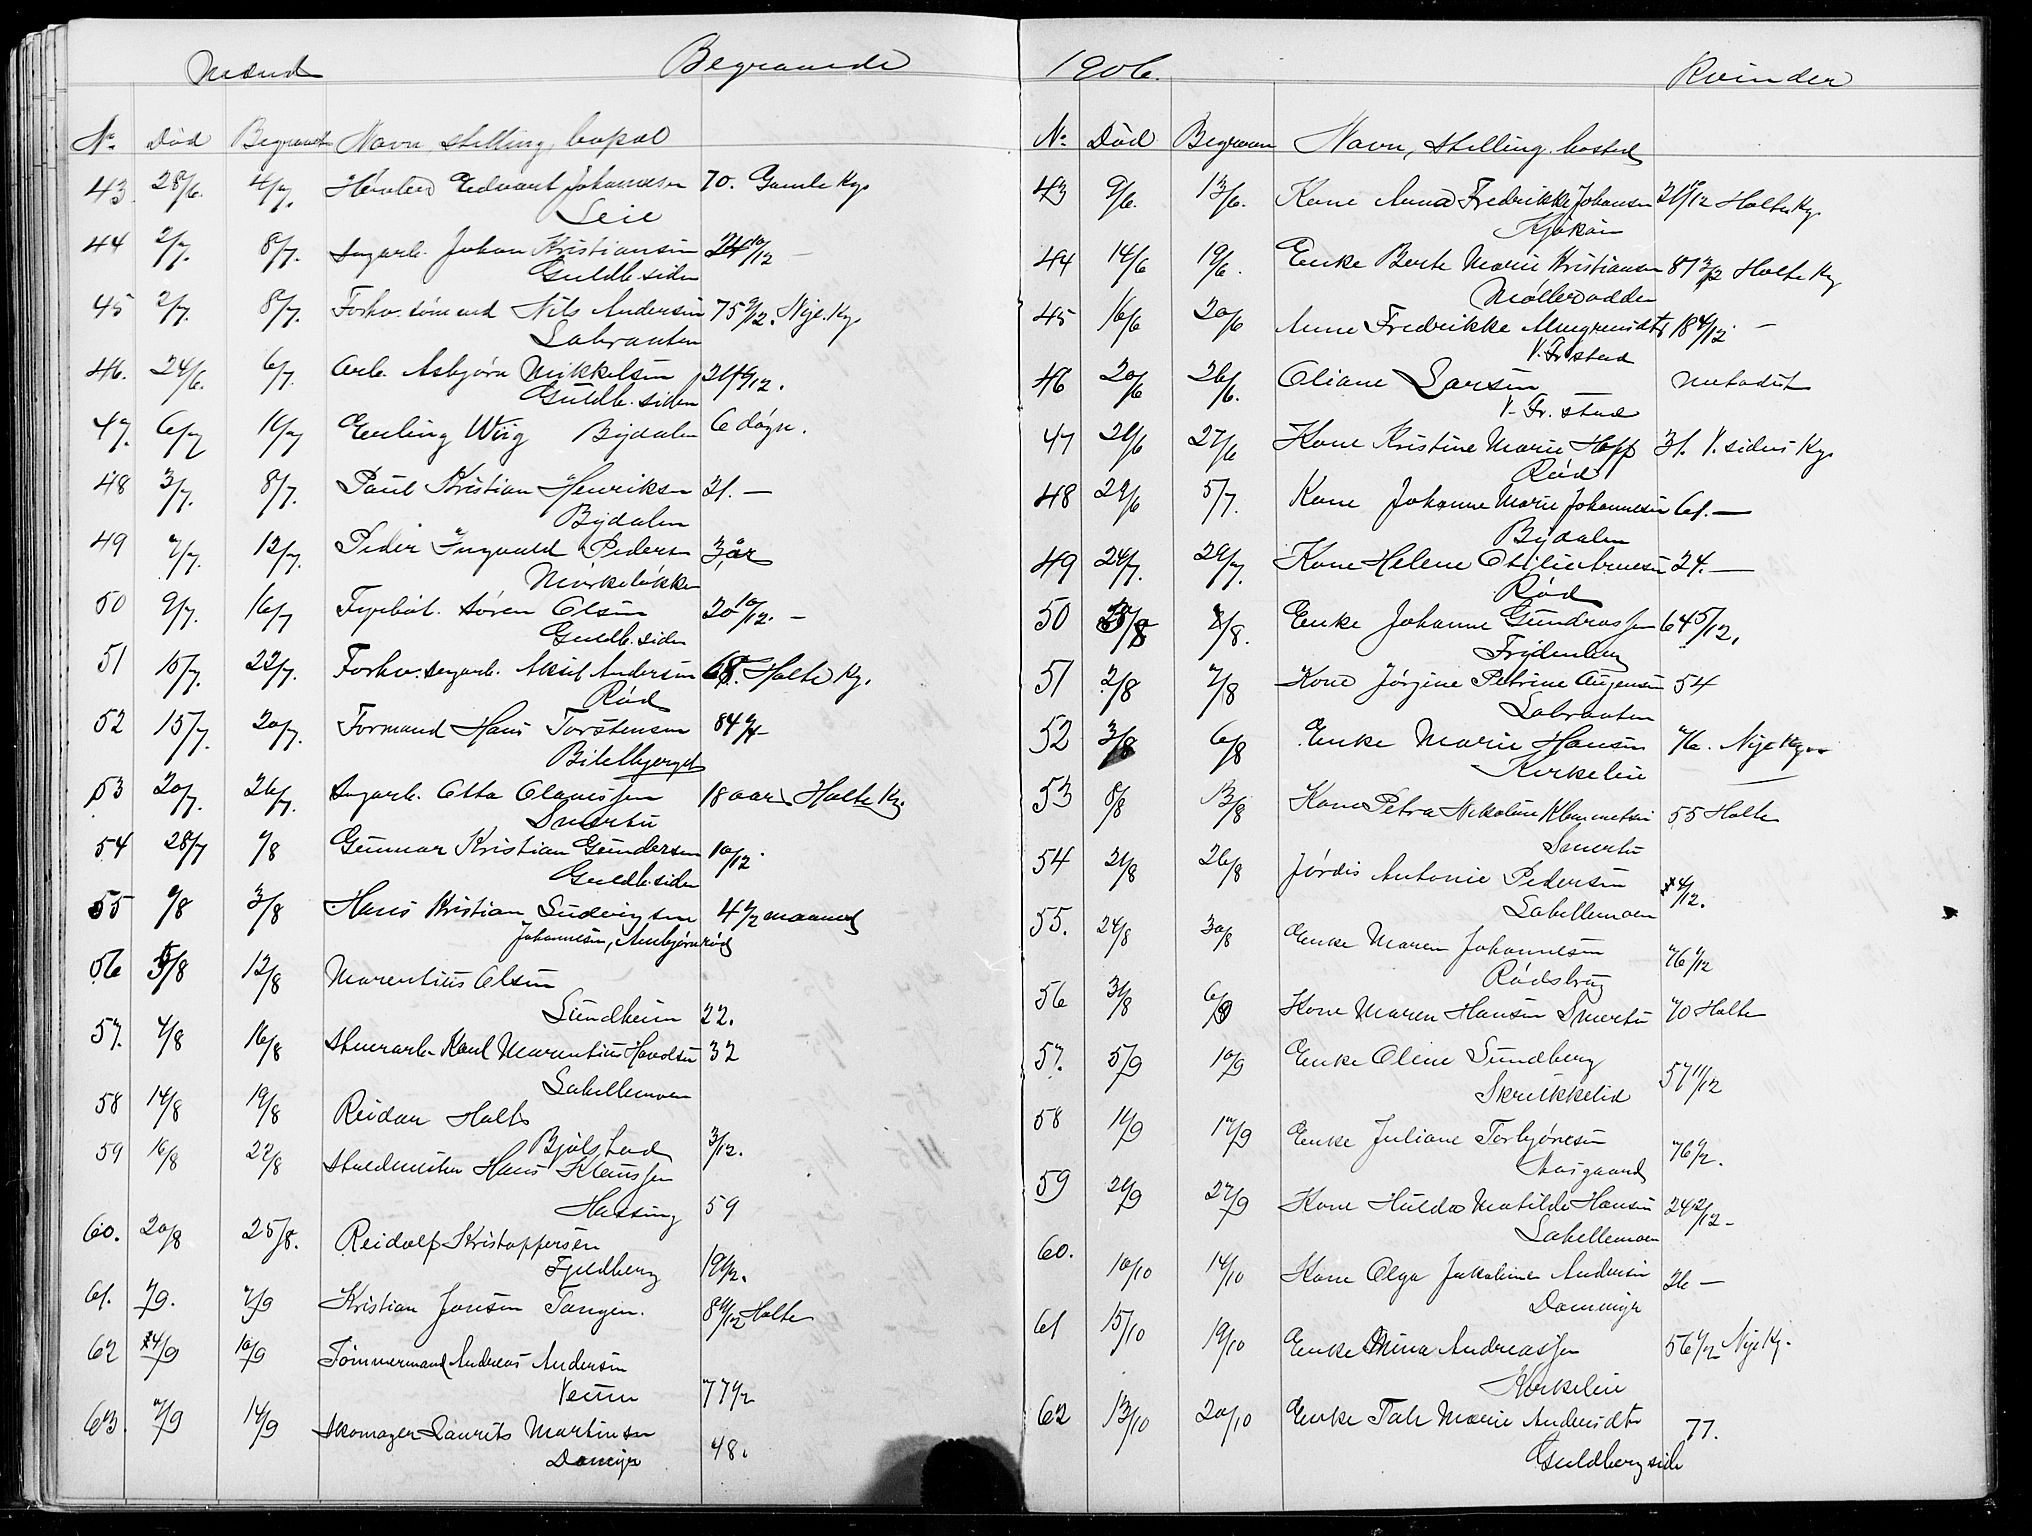 Mænd Begravede
No Død Begravet Navn, stilling, bopæl
43 28/6. 4/7. Edvart Johannesen 70. Gamle Kg.
Leie
44 2/7. 8/7. Sagarb. Johan Kristiansen 24 10/12 —
Guldb. siden
45 2/7. 8/7. Forhv. sømand Nils Andersen 75 9/12. Nye Kg.
Labraaten
46. 24/6. 6/7. Arb. Asbjørn Mikkelsen
Guldb. siden
47. 6/7 10/7 Erling Wiig Bydalen 6 døgn.
48 3/7. 8/7. Paul Kristian Henriksen 21. —
Bydalen
49 7/7. 12/7. Peder Ingvald Pedersen 3 år
Mørkeløkken
50 9/7. 16/7 Fyrbøt. Søren Olsen 20 10/12. —
Guldb. siden
51 15/7. 22/7. Forhv. sagarb. Aksel Andersen Holte Kg.
Rød
52 15/7. 20/7. Formand Hans Torstensen 84
Bilelbjerget
53 20/7. 26/7. Sagarb. Otto Olaussen 18 aar Holte Kg.
Smertu
54 28/7 1/8 Gunnar Kristian Gundersen 10/12.
Guldb. siden
55 1/8 3/8 Hans Kristian Ludvigsen 4 1/2 maaned
Johannesen, Ambjørnrød
56 5/8 12/8 Marentius Olsen
Sundheim 22.
57. 7/8 16/8 Karl Marentius 32
Labellemoen
58 14/8 19/8 Reidar Holt
Bjølstad 3/12.
59 16/8 22/8 Hans Klaussen
Hassing 59
60. 20/8 25/8. Reidolf Kristoffersen
Fjeldberg 19 1/2.
61. 1/9. 7/9 Kristian Jonsen Tangen. Holte
62 4/9 10/9 Tømmermand Andreas Andersen
Veum 77 1/2
63. 7/9 14/9 Skomager Laurits Martinsen
Dammyr 48.
1906. Kvinder
No Død Begraven Navn, stilling, bosted
43 9/6. 13/6. Kone Anna Fredrikke Johansen Holte Kg.
Kjøkøen
44 14/6 19/6. Enke Berte Marie Kristiansen 87 3/12 Holte Kg
Møllerodden
45 16/6 20/6 Anne Fredrikke 18 4/12. —
V. Fr. stad
46 20/6 26/6. Oliane Larsen Metodist
V. Fr. stad
47 21/6 27/6 Kone Kristine Marie Hoff 31. V. sidens Kg.
Rød
48 29/6 5/7. Kone Johanne Marie Johannesen 61. —
Bydalen
49 24/7. 29/7. Kone Helene Otilie Arnesen 24. —
Rød
50 8/8. Enke Johanne Gundrassen 64 5/12.
Frydenberg
51 2/8 7/8 Kone Jørgine Petrine Augensen 54
Labraaten
52 3/8 6/8 Enke Marie Hansen 76. Nye Kg.
Kirkeleie
53 8/8 13/8 Kone Petra Nikoline Klemmetsen 55 Holte
Smertu
54 21/8 26/8 Jørdis Antonie Pedersen 4/12.
Labellemoen
55. 24/8 30/8 Enke Maren Johannesen 76 1/12
Rødsbrug
56 31/8 6/9 Kone Maren Hansen Smertu 70 Holte
57. 5/9 10/9 Enke Oline Sundberg
Skrukkelid 57 11/12
58 11/9 17/9 Enke Juliane Torbjørnsen
Aasgaard 76 1/2.
59 21/9 27/9 Kone Hulda Matilde Hansen
Labellemoen
60. 10/10 14/10 Kone Olga Jakobine Andersen 26 —
Dammyr
61 15/10 19/10 Enke Mina Andreassen 56 1/2 Nye Kg.
Kirkeleie
62 13/10 20/10 Enke Tale Marie 77.
Guldbergside